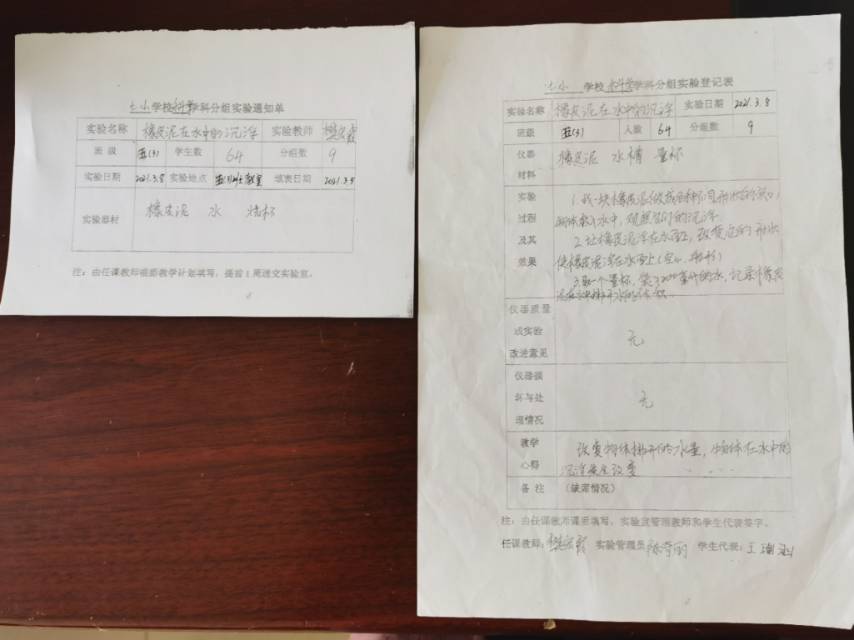 土小 学校 科学 学科分组实验通知单
实验名称 橡皮泥在水中的沉浮 实验教师
班 级 五(3) 学生数 64 分组数 9
实验日期 2021.3.8 实验地点 教室 填表日期 2021.3.5
实验器材 橡皮泥 水 烧杯
注：由任课教师根据教学计划填写，提前1周送交实验室。
土小 学校 科学 学科分组实验登记表
实验名称 橡皮泥在水中的沉浮 实验日期 2021.3.8
班级 五(3) 人数 64 分组数 9
仪器
材料 橡皮泥 水槽 量杯
实验 1.找一块橡皮泥做成各种不同形状的实心
过程 物体放入水中，观察它们的沉浮
及其 2.让橡皮泥浮在水面上，改变它的形状
效果 使橡皮泥浮在水面上
3.取一个量杯，装200毫升的水，记录橡皮
泥排开水的体积
仪器质量
或实验 无
改进意见
仪器损
坏与处 无
理情况
教学 改变物体排开的水量，物体在水中的
心得 沉浮 改变
备 注 （缺席情况）
注：由任课教师课前填写，实验室管理教师和学生代表签字。
任课教师： 实验管理员 学生代表：王